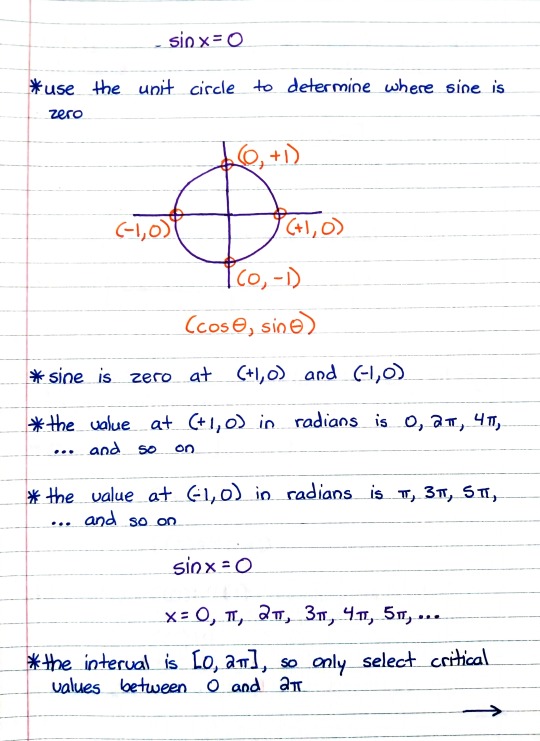 - sinx = 0
*use the unit circle to determine where sine is
zero
(0, +1)
(-1,0)
(+1, 0)
(0, -1)
(cosθ, sinθ)
*sine is zero at (+1,0) and (-1,0)
*the value at (+1,0) in radians is 0, 2π, 4π,
... and so on
*the value at (-1,0) in radians is π, 3π, 5π,
... and so on
sinx = 0
x = 0, π, 2π, 3π, 4π, 5π, ...
*the interval is [0, 2π], so only select critical
values between 0 and 2π
→